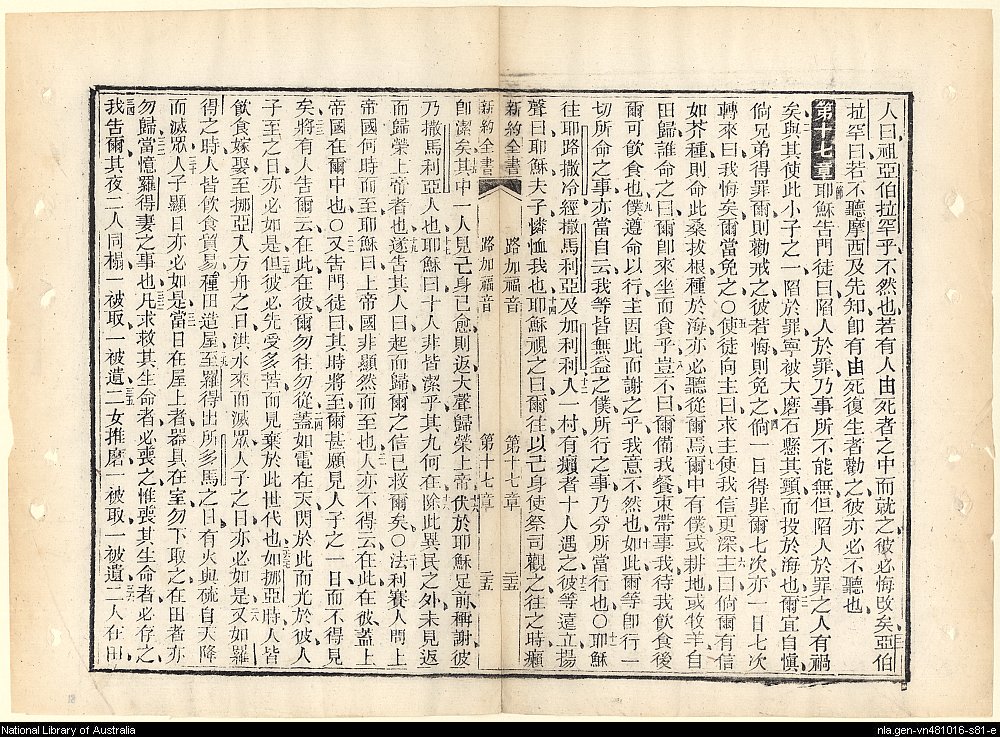 人曰祖亞伯拉罕乎不然也若有人由死者之中而就之彼必悔改矣亞伯
拉罕曰若不聽摩西及先知卽有由死復生者勸之彼亦必不聽也
第十七章 耶穌告門徒曰陷人於罪乃事所不能無但陷人於罪之人有禍
矣與其使此小子之一陷於罪寧被大磨石懸其頸而投於海也爾宜自慎
倘兄弟得罪爾則勸戒之彼若悔則免之倘一日得罪爾七次亦一日七次
轉來曰我悔矣爾當免之〇使徒向主曰求主使我信更深主曰倘爾有信
如芥種則命此桑拔根種於海亦必聽從爾焉爾中有僕或耕地或牧羊自
田歸誰命之曰爾卽來坐而食乎豈不曰爾備我餐束帶事我待我飲食後
爾可飲食也僕遵命以行主因此而謝之乎我意不然也如此爾等卽行一
切所命之事亦當自云我等皆無益之僕所行之事乃分所當行也〇耶穌
往耶路撒冷經撒馬利亞及加利利入一村有癩者十人遇之彼等遠立揚
聲曰耶穌夫子憐恤我也耶穌視之曰爾往以己身使祭司觀之往之時癩
新約全書 路加福音 第十七章 三五
新約全書 路加福音 第十七章 三五
卽潔矣其中一人見己身已愈則返大聲歸榮上帝伏於耶穌足前稱謝彼
乃撒馬利亞人也耶穌曰十人非皆潔乎其九何在除此異民之外未見返
而歸榮上帝者也遂告其人曰起而歸爾之信已救爾矣〇法利賽人問上
帝國何時而至耶穌曰上帝國非顯然而至也人亦不得云在此在彼蓋上
帝國在爾中也〇又告門徒曰其時將至爾甚願見人子之一日而不得見
矣將有人告爾云在此在彼爾勿往勿從蓋如電在天閃於此而光於彼人
子至之日亦必如是但彼必先受多苦而見棄於此世代也如挪亞時人皆
飲食嫁娶至挪亞入方舟之日洪水來而滅眾人子之日亦必如是又如羅
得之時人皆飲食貿易種田造屋至羅得出所多馬之日有火與硫自天降
而滅眾人子顯日亦必如是當日在屋上者器具在室勿下取之在田者亦
勿歸當憶羅得妻之事也凡求救其生命者必喪之惟喪其生命者必存之
我告爾其夜二人同榻一被取一被遺二女推磨一被取一被遺二人在田
National Library of Australia
nla.gen-vn481016-s81-e